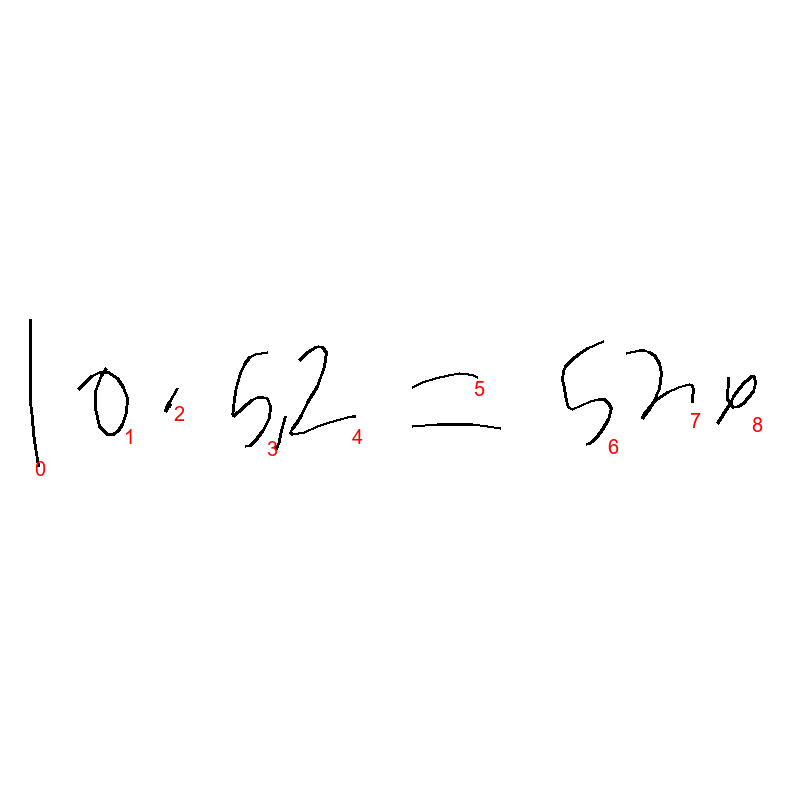 10 · 5,2 = 52 φ
0 1 2 3 4 5 6 7 8